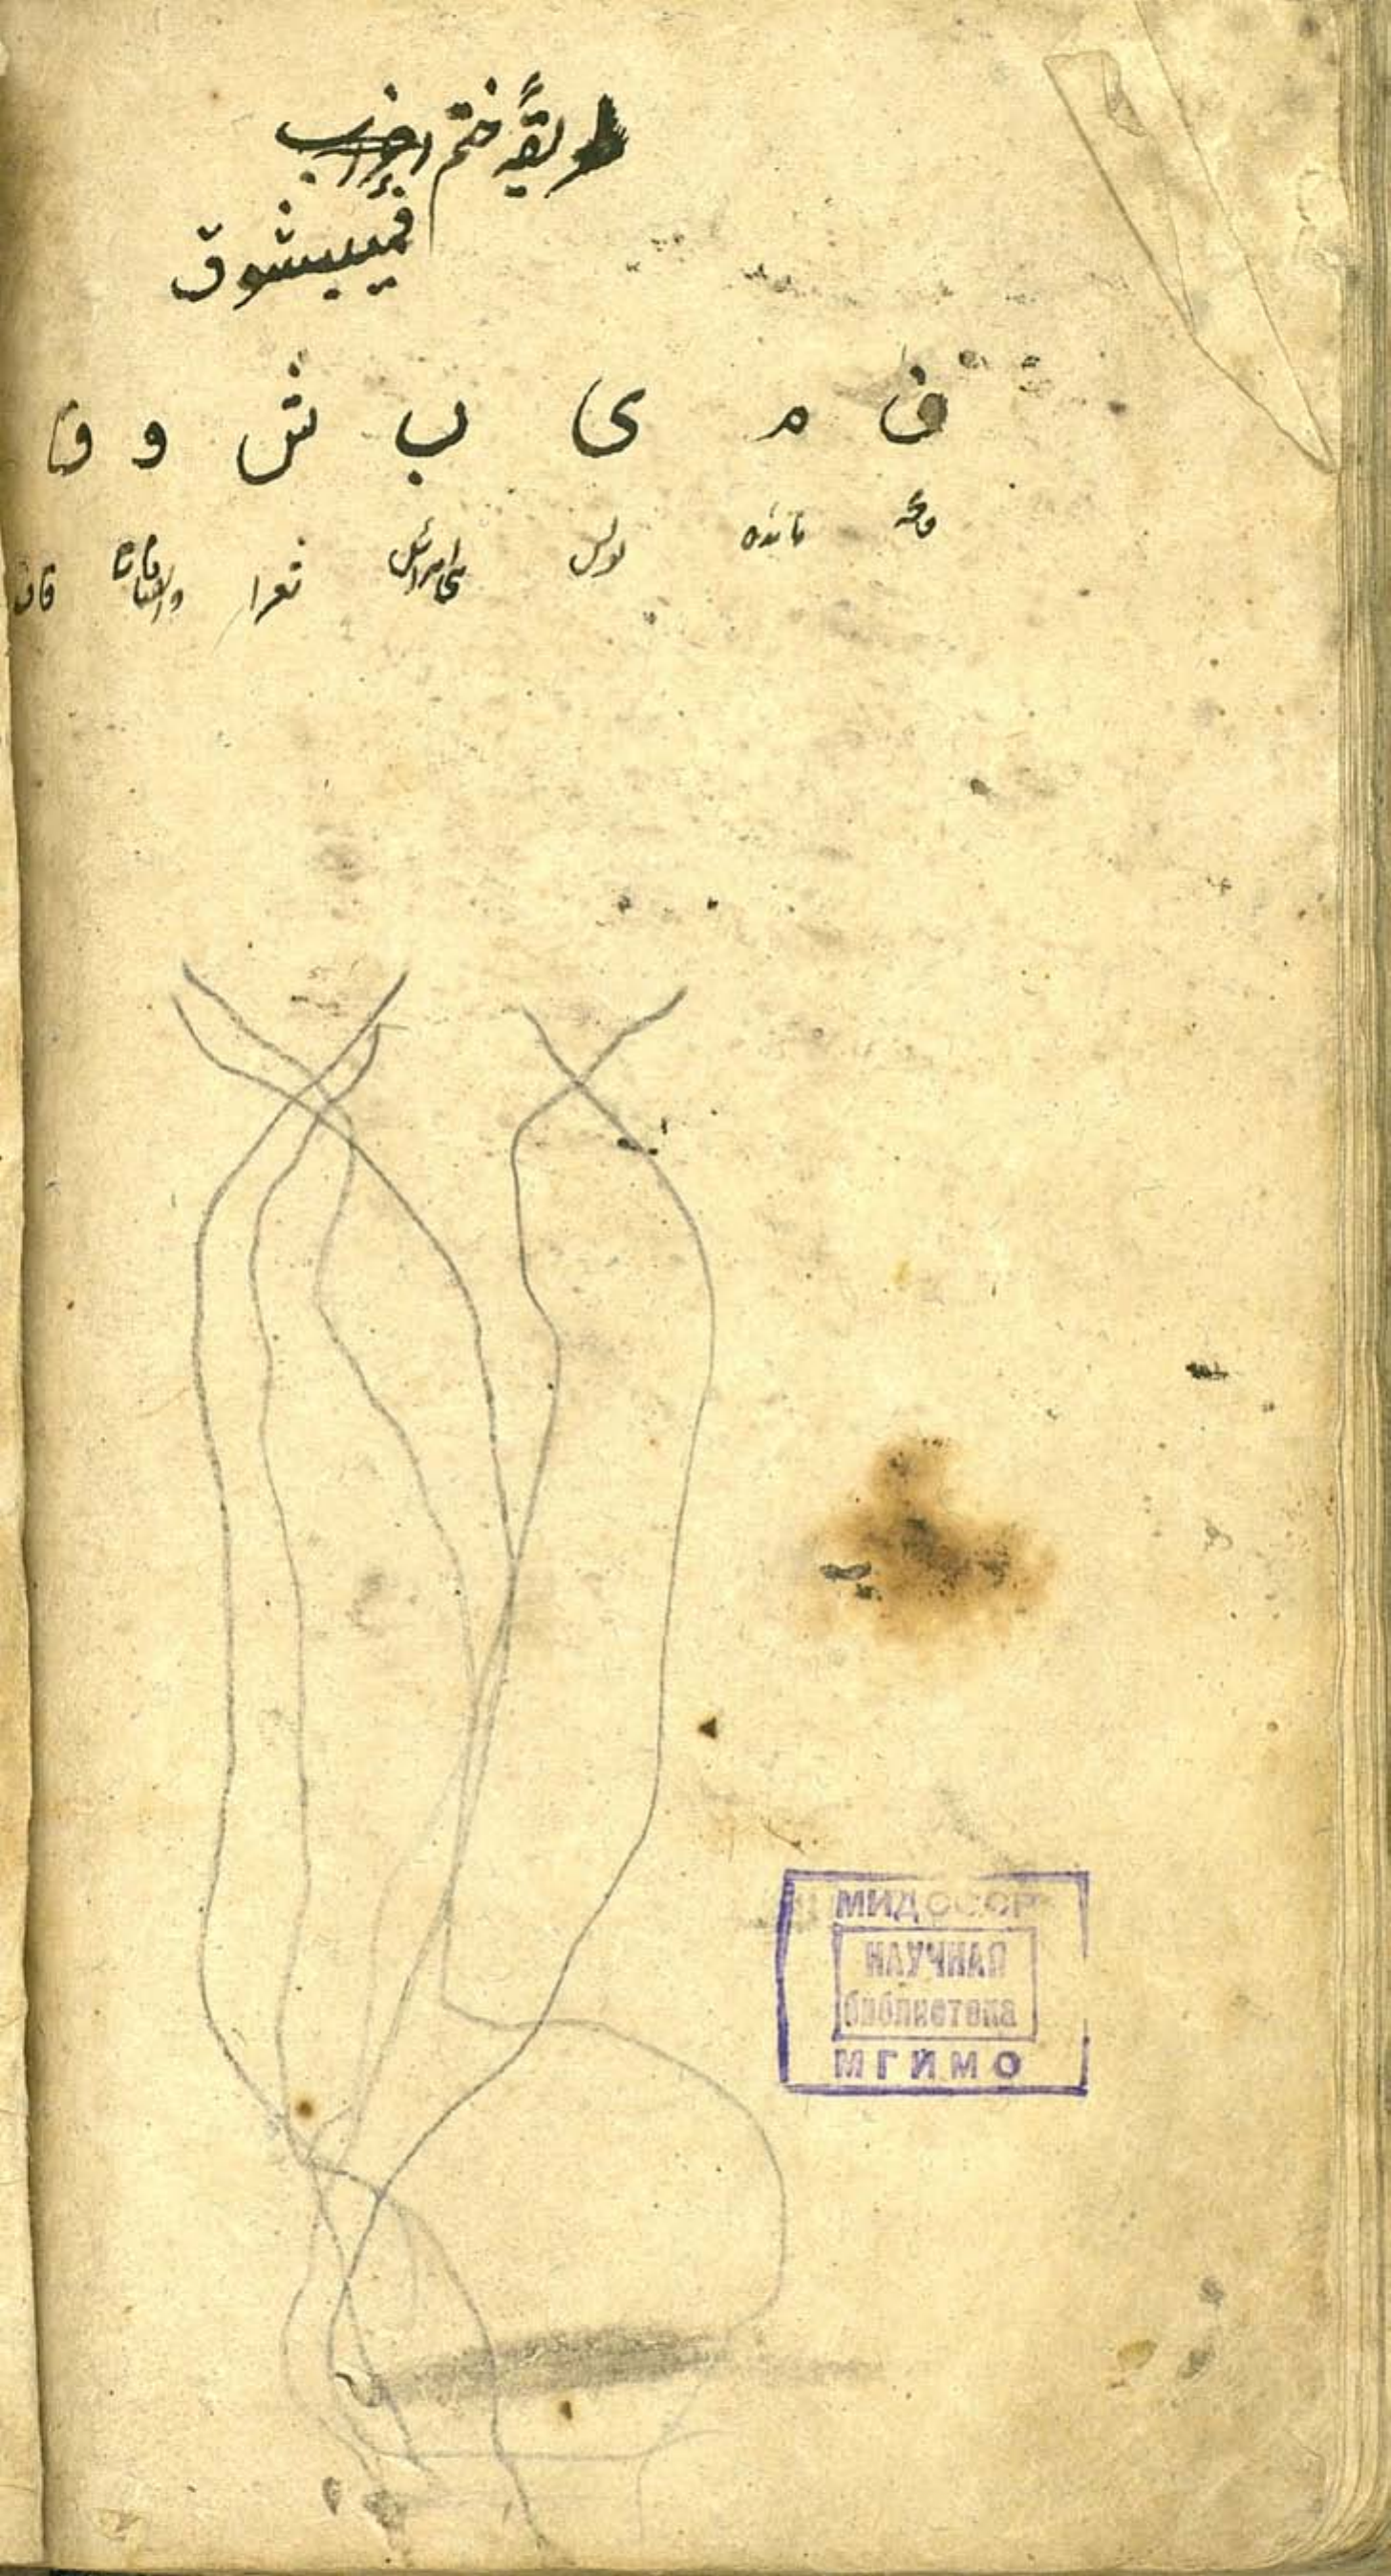 طریقهٔ ختم احزاب
فمیبشوق
ف م ی ب ش و ق
فاتحه مائده یونس بنی اسرائیل شعرا والصافات قاف
МИД СССР
НАУЧНАЯ
библиотека
МГИМО